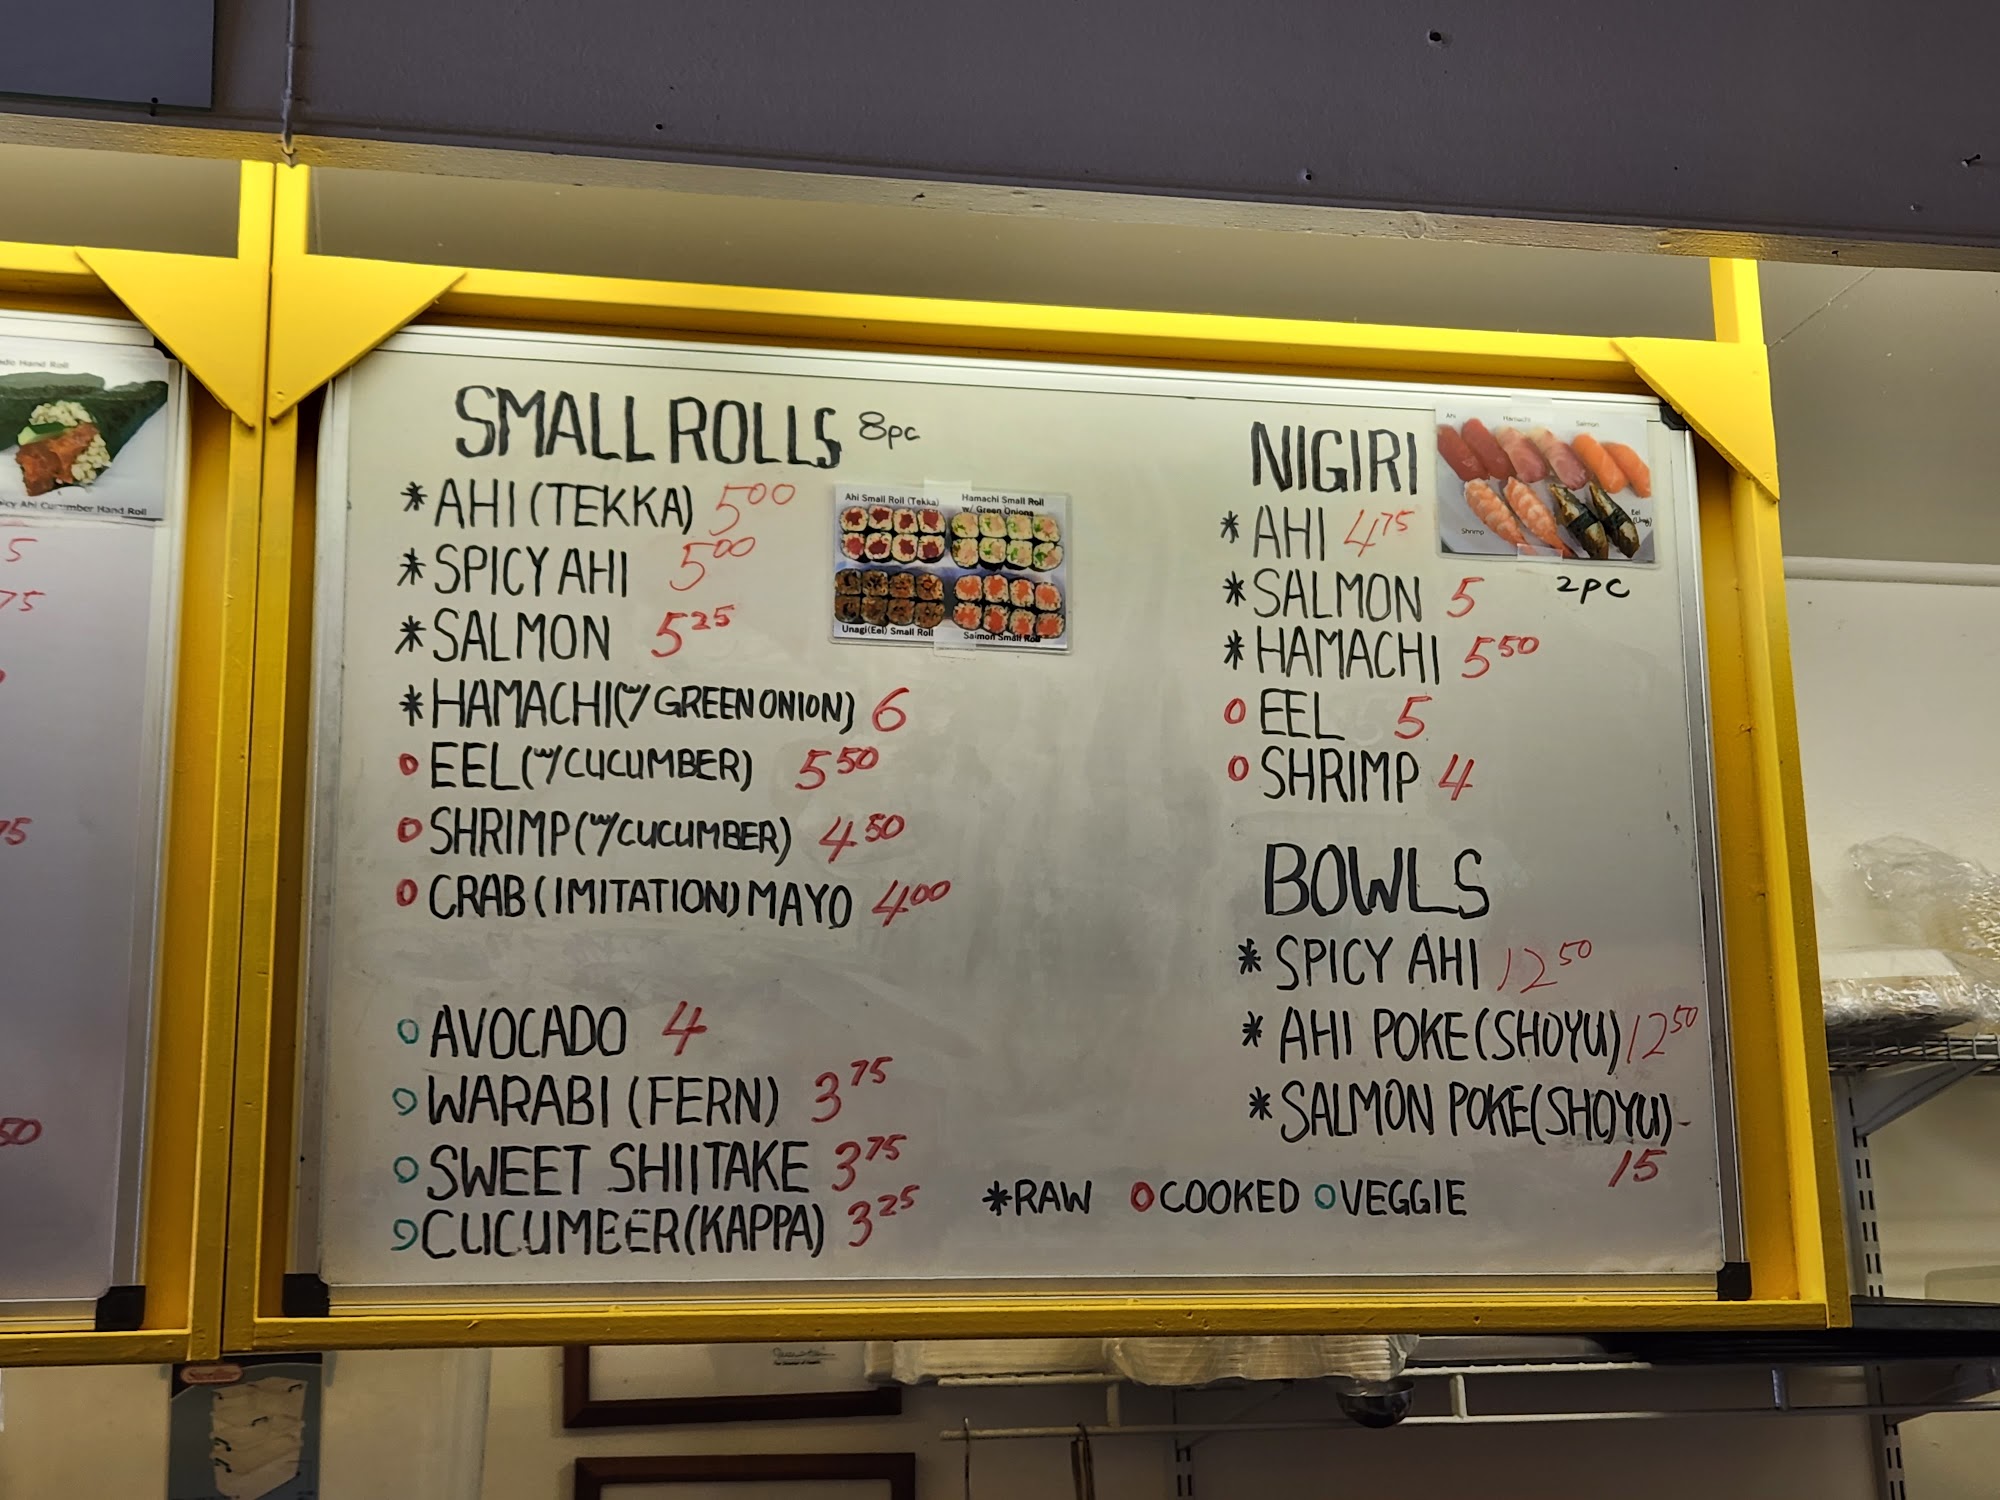 Hand Roll
Cucumber Hand Roll
5
75
75
50
SMALL ROLLS 8pc
*AHI (TEKKA) 5.00
*SPICY AHI 5.00
*SALMON 5.25
*HAMACHI (W/ GREEN ONION) 6
O EEL (W/ CUCUMBER) 5.50
O SHRIMP (W/ CUCUMBER) 4.50
O CRAB (IMITATION) MAYO 4.00
O AVOCADO 4
O WARABI (FERN) 3.75
O SWEET SHIITAKE 3.75
O CUCUMBER (KAPPA) 3.25
Ahi Small Roll (Tekka)
Hamachi Small Roll
w/ Green Onions
Unagi(Eel) Small Roll
Salmon Small Roll
NIGIRI
Ahi
Hamachi
Salmon
Shrimp
Eel
(Unagi)
2PC
*AHI 4.75
*SALMON 5
*HAMACHI 5.50
O EEL 5
O SHRIMP 4
BOWLS
*SPICY AHI 12.50
*AHI POKE (SHOYU) 12.50
*SALMON POKE (SHOYU)-
15
*RAW O COOKED O VEGGIE